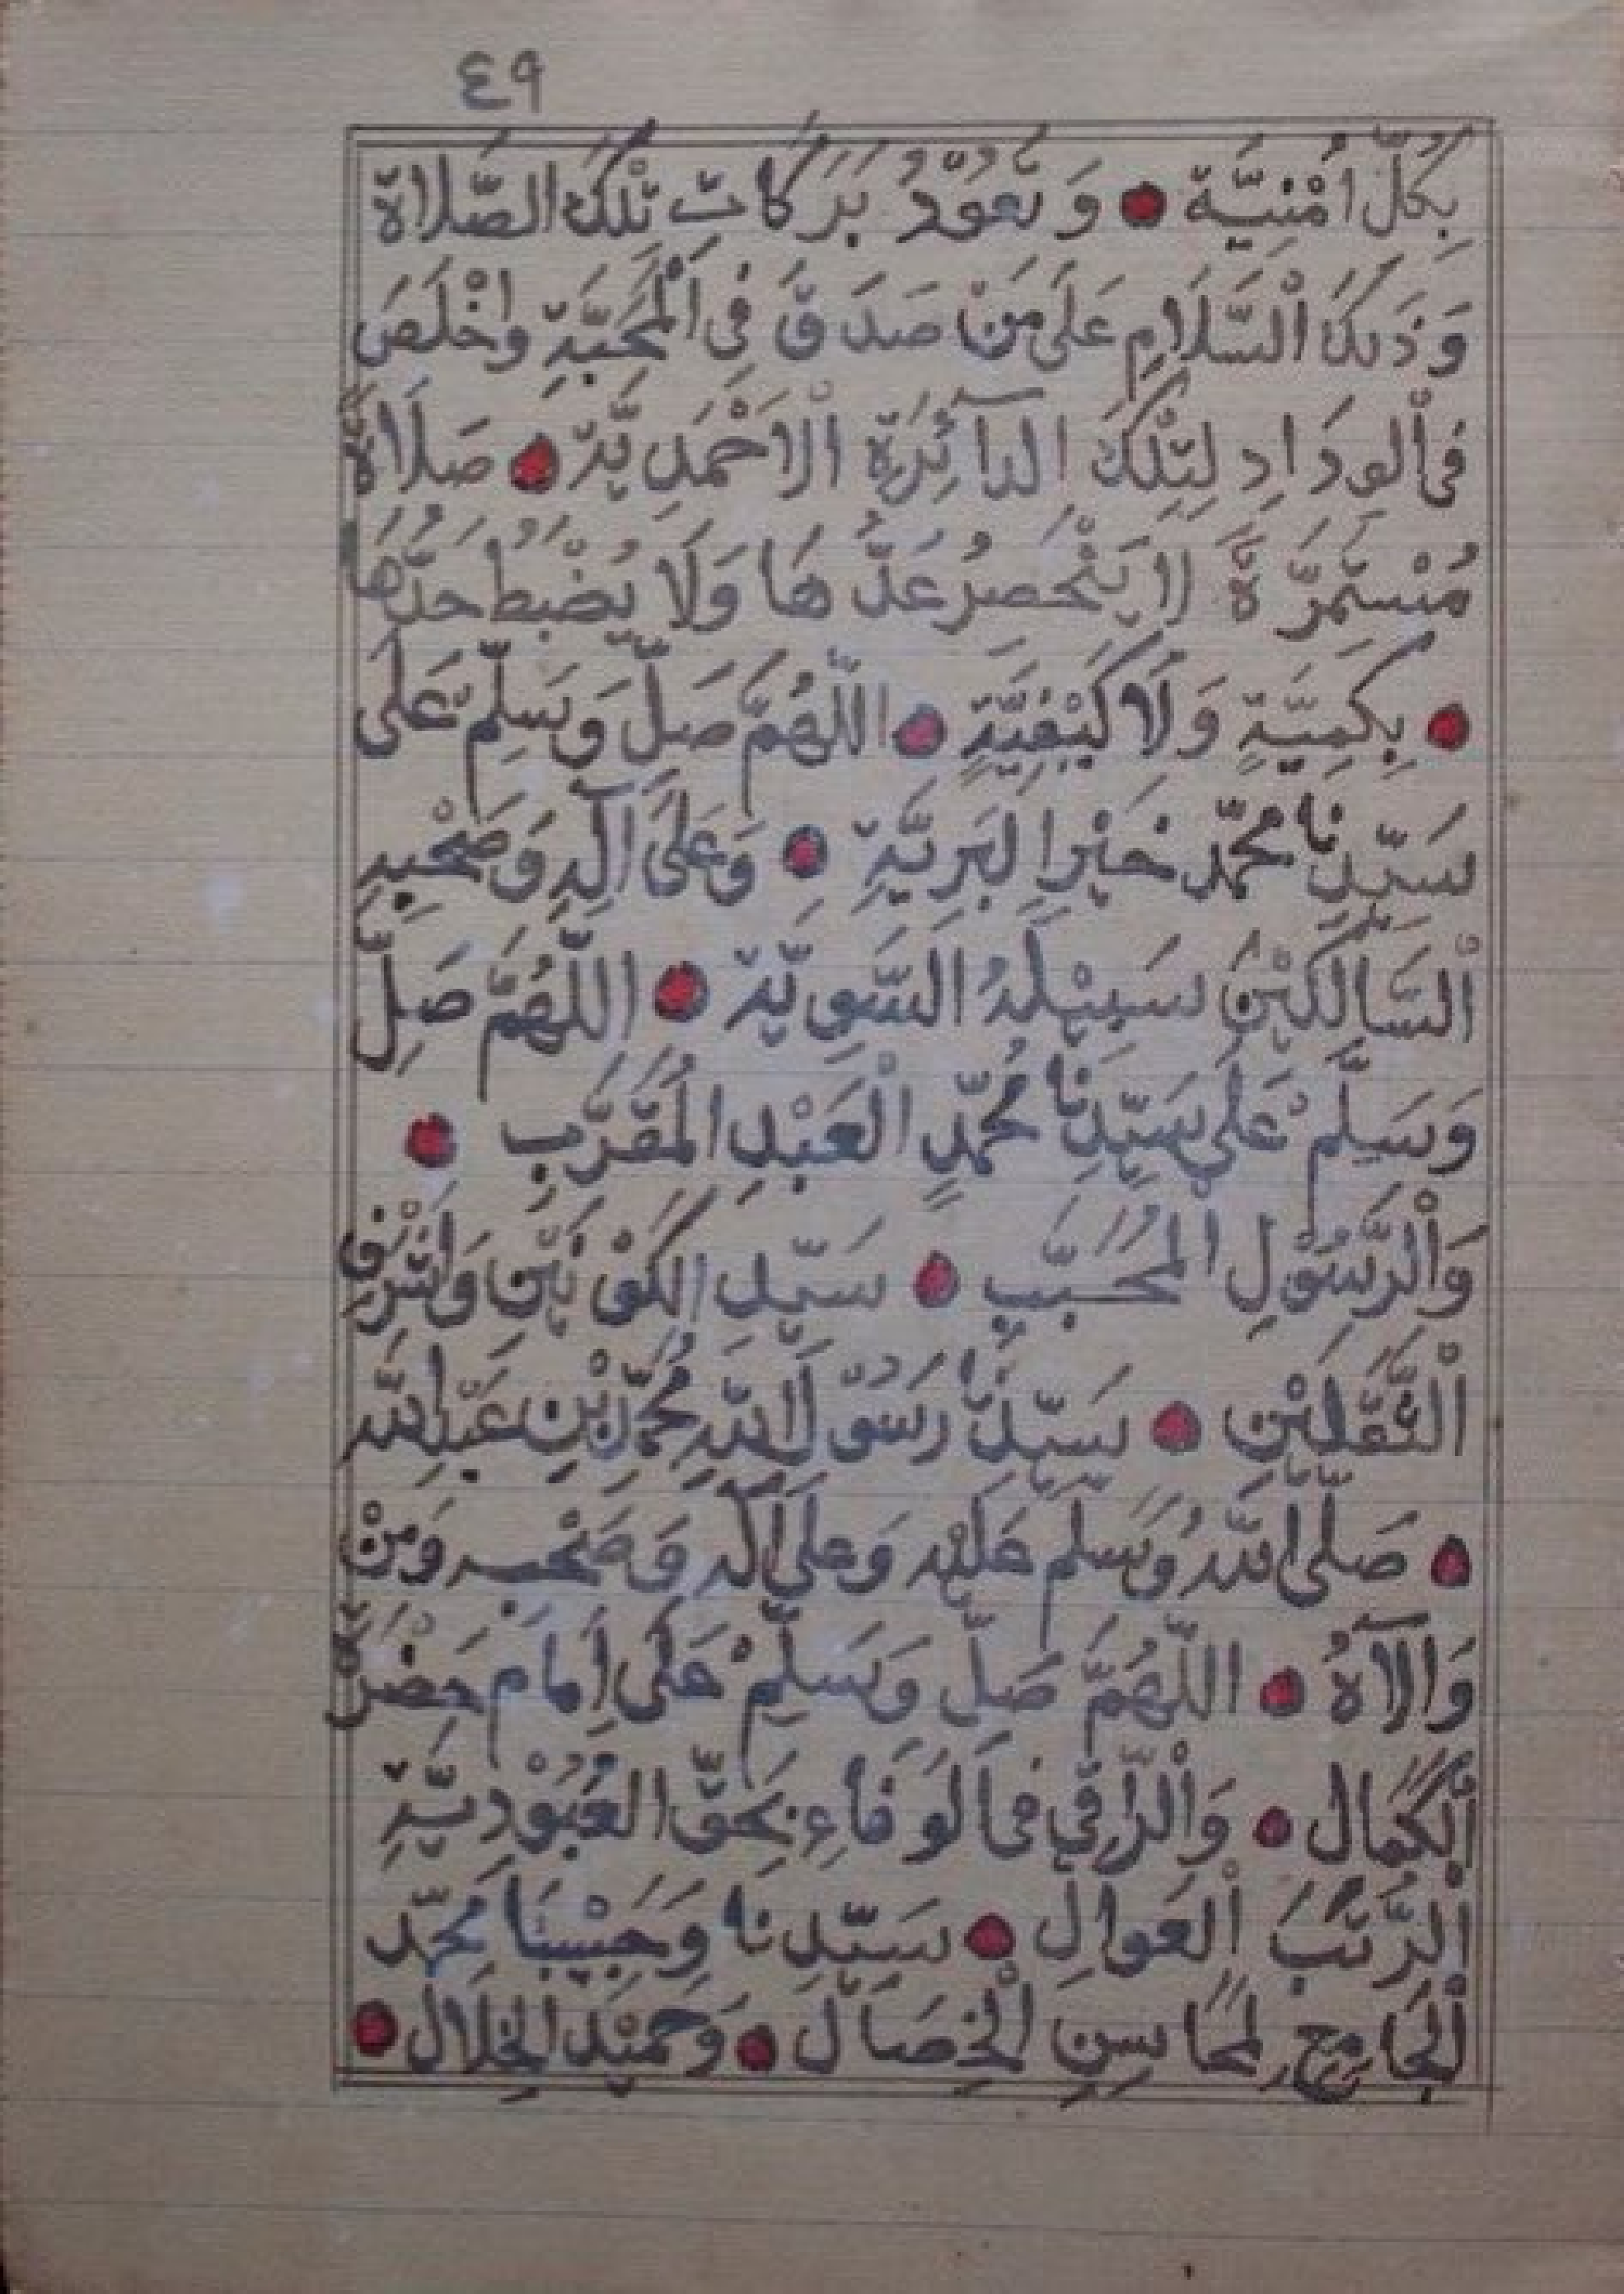 ٤٩
بِكُلِّ اُمْنِيَّة ● وَ تَعُوْدُ بَرَكَاتِ تِلْكَ الصَّلاة
وَذَلِكَ الْسَّلَامِ عَلَى مَنْ صَدَقَ فِى الْمَحَبَّةِ وَاخْلَصَ
فىِ الْوِدَادِ لِتِلْكَ الدآئِرَةِ الْاَحْمَدِيَّة ● صَلَاةً
مُسْتَمِرَّةً لَا يَنْحَصِرُ عَدُّهَا وَلَا يُضْبَطُ حَدُّهَا
● بِكَمِيَّةٍ وَلَا كَيْفِيَّةٍ ● اللّهُمَّ صَلِّ وَسَلِّمْ عَلَى
سَيِّدِنَا محمّد خَيْرِ البَرِيَّةِ ● وَعَلَى آلِهِ وَصَحْبِهِ
الْسَّالِكِيْنَ سَبِيْلَهُ السَّوِيَّة ● اللّهُمَّ صَلِّ
وَسَلِّمْ عَلَى سَيِّدِنَا مُحَمّدٍ الْعَبْدِ المُقَرَّبِ ●
وَالْرَّسُوْلِ الْمُحَبَّبِ ● سَيِّدِ الكَوْنَيْنِ وَاشْرَفِ
الْثَّقَلَيْنِ ● سَيِّدِنَا رَسُوْلِ اللّهِ مُحَمّدِ بْنِ عَبْدِاللّه
● صَلَّى اللّهُ وَسَلَّمَ عَلَيْهِ وَعَلَى آلِهِ وَصَحْبِهِ وَمَنْ
وَالاَهُ ● اللّهُمَّ صَلِّ وَسَلِّمْ عَلَى اِمَامِ حَضْرَةِ
الْكَمَال ● وَالْرَّاقِي فىِ الوَفَاءِ بِحَقِّ العُبُوْدِيَّةِ
الْرُّتَبَ الْعَوَالِ ● سَيِّدِنَا وَحَبِيْبِنَا مُحَمّد
الْجَامِعِ لِمَحَاسِنِ الْخِصَال ● وَحَمِيْدِ الخِلَال ●